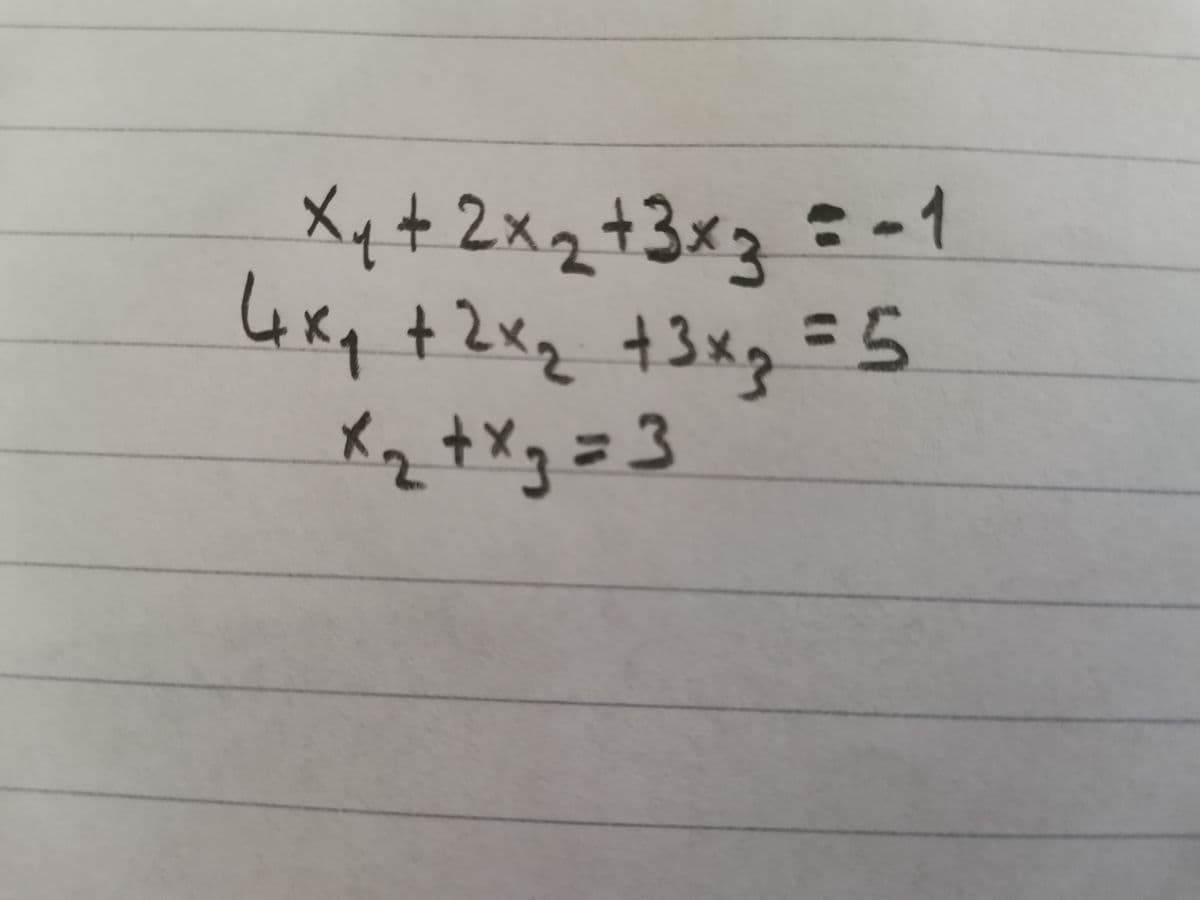 x₁ + 2x₂ + 3x₃ = -1
4x₁ + 2x₂ + 3x₃ = 5
x₂ + x₃ = 3